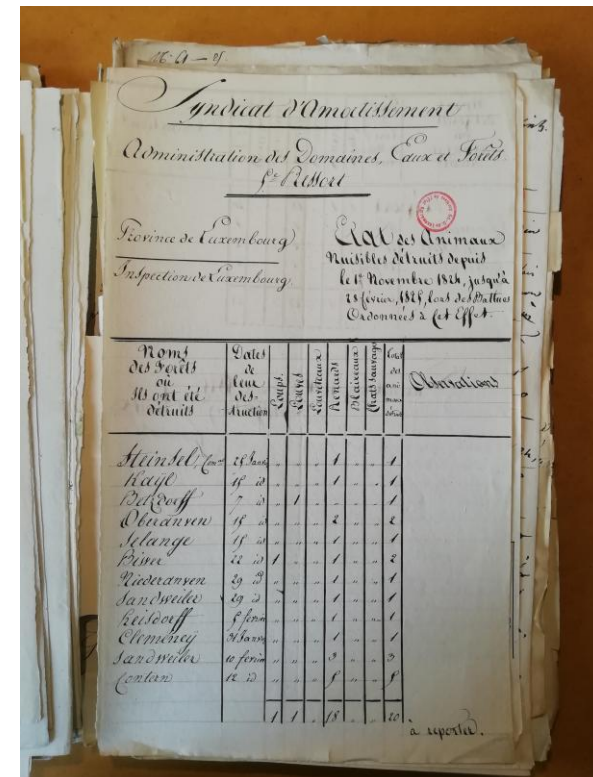 Syndicat d'Amortissement
Administration des Domaines, Eaux et Forêts
Ressort
Province de Luxembourg
Inspection de Luxembourg
Etat des Animaux
Nuisibles détruits depuis
le 1er Novembre 1824, jusqu'à
28 février, 1825, lors des Battues
Ordonnées à Cet Effet.
Noms des Forêts où Ils ont été détruits | Dates de leur destruction | Loups | Louves | Louveteaux | Renards | Blaireaux | Chats sauvages | Total des animaux détruits | Observations
Steinsel, 25 Janv. " " " 1 " " 1
Kayl 15 id " " " 1 " " 1
Betzdorff 7 id " 1 " " " " 1
Oberanven 15 id " " " 2 " " 2
Selange 15 id " " " 1 " " 1
Biwer 22 id 1 " " 1 " " 2
Niederanven 29 id " " " 1 " " 1
Sandweiler 29 id " " " 1 " " 1
5 février " " " 1 " " 1
Clemency 31 Janv. " " " 1 " " 1
Sandweiler 10 février " " " 3 " " 3
Contern 12 id " " " 5 " " 5
1 1 " 18 " " 20
à reporter.